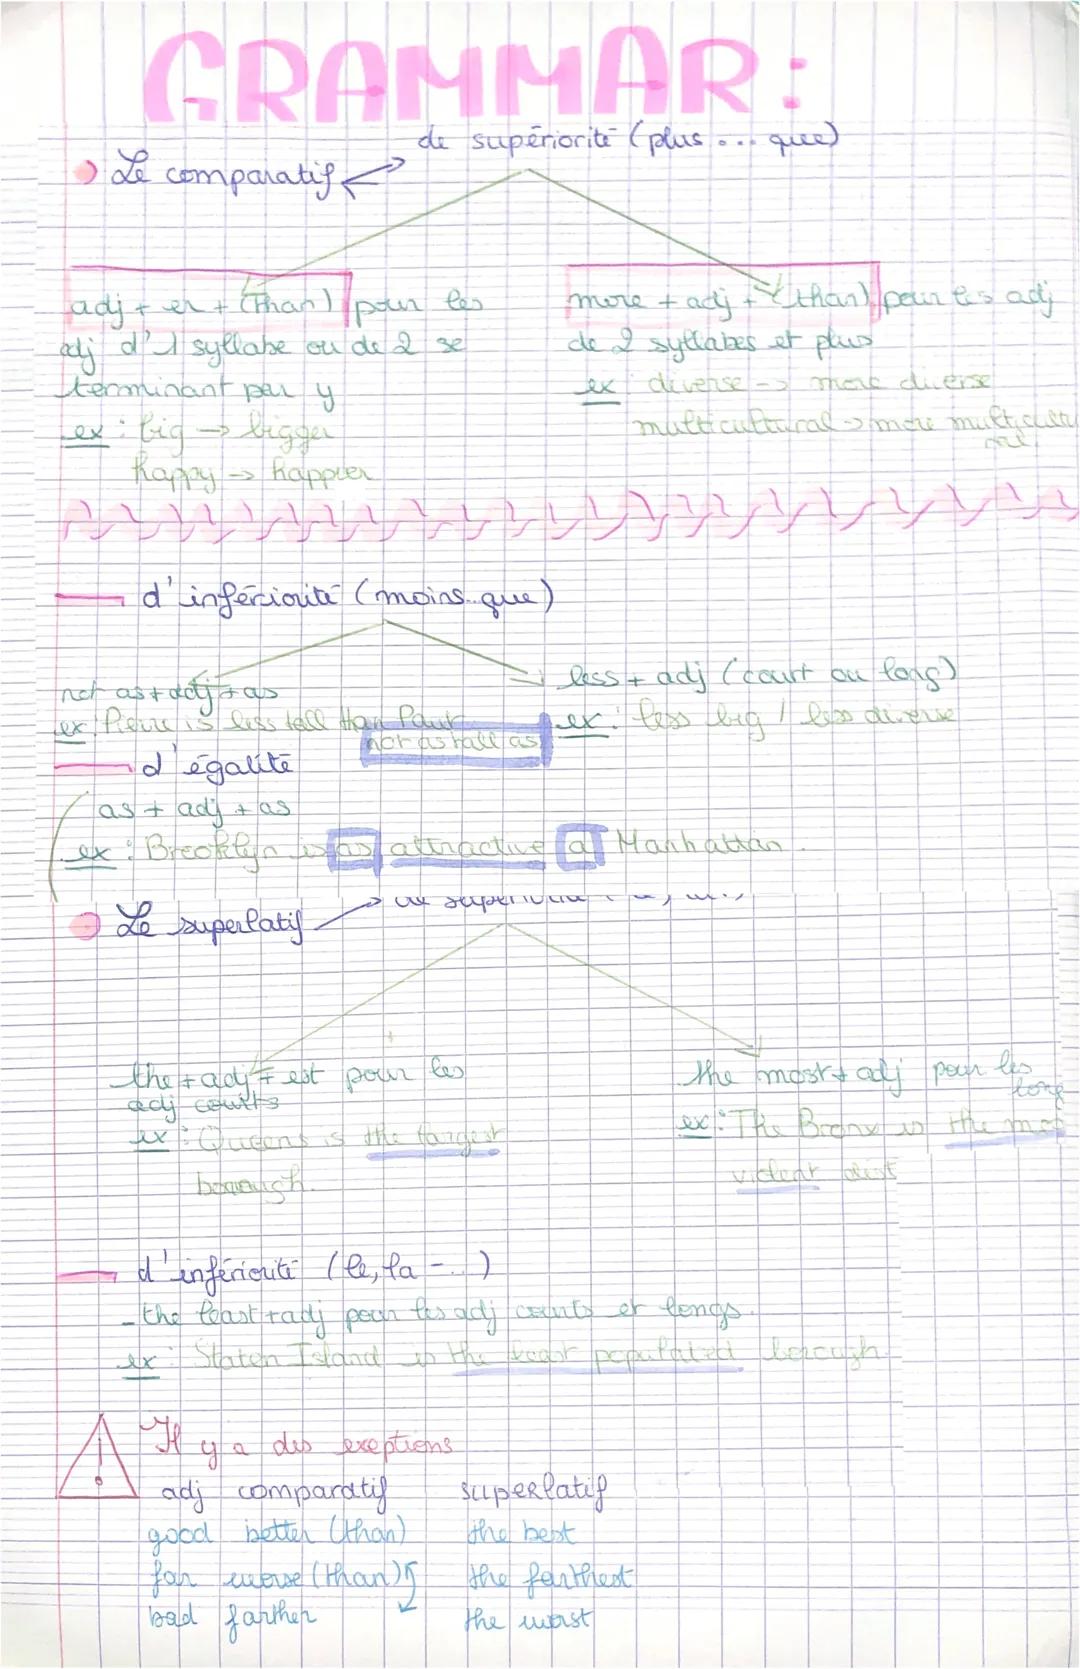 GRAMMAR:
de supériorité (plus ... que)
Le comparatif
adj + er + (than) pour les
adj d'1 syllabe ou de 2 se
terminant par y
ex : big → bigger
happy → happier
more + adj + (than) pour les adj
de 2 syllabes et plus
ex : diverse → more diverse
multicultural → more multicultu
ral
d'infériorité (moins..que)
not as + adj + as
ex : Pierre is less tall than Paul
not as tall as
less + adj (court ou long)
ex : less big / less diverse
d'égalité
as + adj + as
ex : Brooklyn is as attractive a Manhattan.
Le superlatif
the + adj + est pour les
adj courts
ex : Queens is the largest
borough.
the most + adj pour les
long
ex : The Bronx is the mos
violent dist
d'infériorité (le, la -...)
- the least + adj pour les adj courts et longs.
ex : Staten Island is the least populated borough
Il y a des exeptions
adj comparatif superlatif
good better (than) the best
far worse (than) the farthest
bad farther the worst